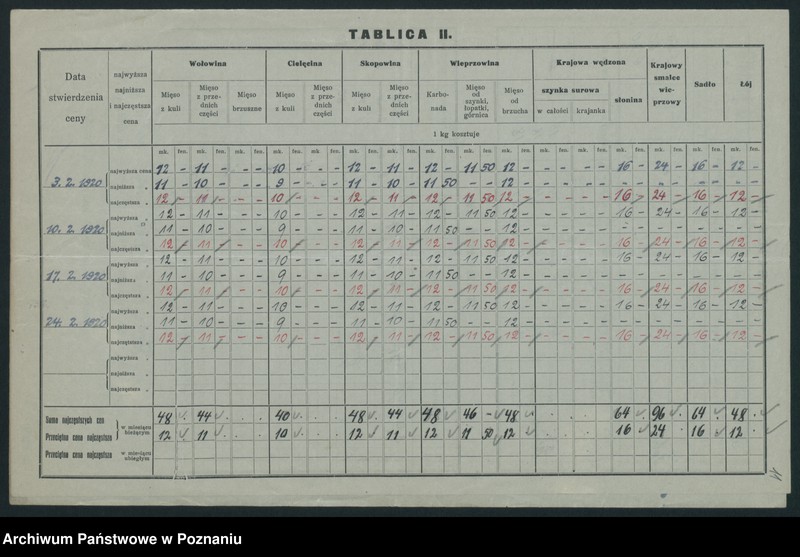 TABLICA II.
Data stwierdzenia ceny
najwyższa najniższa i najczęstsza cena
Wołowina
Cielęcina
Skopowina
Wieprzowina
Krajowa wędzona
Krajowy smalec wieprzowy
Sadło
Łój
Mięso z kuli
Mięso z przednich części
Mięso brzuszne
Mięso z kuli
Mięso z przednich części
Mięso z kuli
Mięso z przednich części
Karbonada
Mięso od szynki, łopatki, górnica
Mięso od brzucha
szynka surowa
w całości
krajanka
słonina
1 kg kosztuje
mk. fen. mk. fen. mk. fen. mk. fen. mk. fen. mk. fen. mk. fen. mk. fen. mk. fen. mk. fen. mk. fen. mk. fen. mk. fen. mk. fen. mk. fen. mk. fen.
3. 2. 1920
najwyższa cena 12 - 11 - - - 10 - - - 12 - 11 - 12 - 11 50 12 - - - - - 16 - 24 - 16 - 12 -
najniższa „ 11 - 10 - - - 9 - - - 11 - 10 - 11 50 - - 12 - - - - - - - - - - - - -
najczęstsza „ 12 - 11 - - - 10 - - - 12 - 11 - 12 - 11 50 12 - - - - - 16 - 24 - 16 - 12 -
10. 2. 1920
najwyższa „ 12 - 11 - - - 10 - - - 12 - 11 - 12 - 11 50 12 - - - - - 16 - 24 - 16 - 12 -
najniższa „ 11 - 10 - - - 9 - - - 11 - 10 - 11 50 - - 12 - - - - - - - - - - - - -
najczęstsza „ 12 - 11 - - - 10 - - - 12 - 11 - 12 - 11 50 12 - - - - - 16 - 24 - 16 - 12 -
17. 2. 1920
najwyższa „ 12 - 11 - - - 10 - - - 12 - 11 - 12 - 11 50 12 - - - - - 16 - 24 - 16 - 12 -
najniższa „ 11 - 10 - - - 9 - - - 11 - 10 - 11 50 - - 12 - - - - - - - - - - - - -
najczęstsza „ 12 - 11 - - - 10 - - - 12 - 11 - 12 - 11 50 12 - - - - - 16 - 24 - 16 - 12 -
24. 2. 1920
najwyższa „ 12 - 11 - - - 10 - - - 12 - 11 - 12 - 11 50 12 - - - - - 16 - 24 - 16 - 12 -
najniższa „ 11 - 10 - - - 9 - - - 11 - 10 - 11 50 - - 12 - - - - - - - - - - - - -
najczęstsza „ 12 - 11 - - - 10 - - - 12 - 11 - 12 - 11 50 12 - - - - - 16 - 24 - 16 - 12 -
najwyższa „
najniższa „
najczęstsza „
Suma najczęstszych cen
Przeciętna cena najczęstsza
w miesiącu bieżącym
48 44 40 48 44 48 46 - 48 64 96 64 48
12 11 10 12 11 12 11 50 12 16 24 16 12
Przeciętna cena najczęstsza
w miesiącu ubiegłym
Archiwum Państwowe w Poznaniu